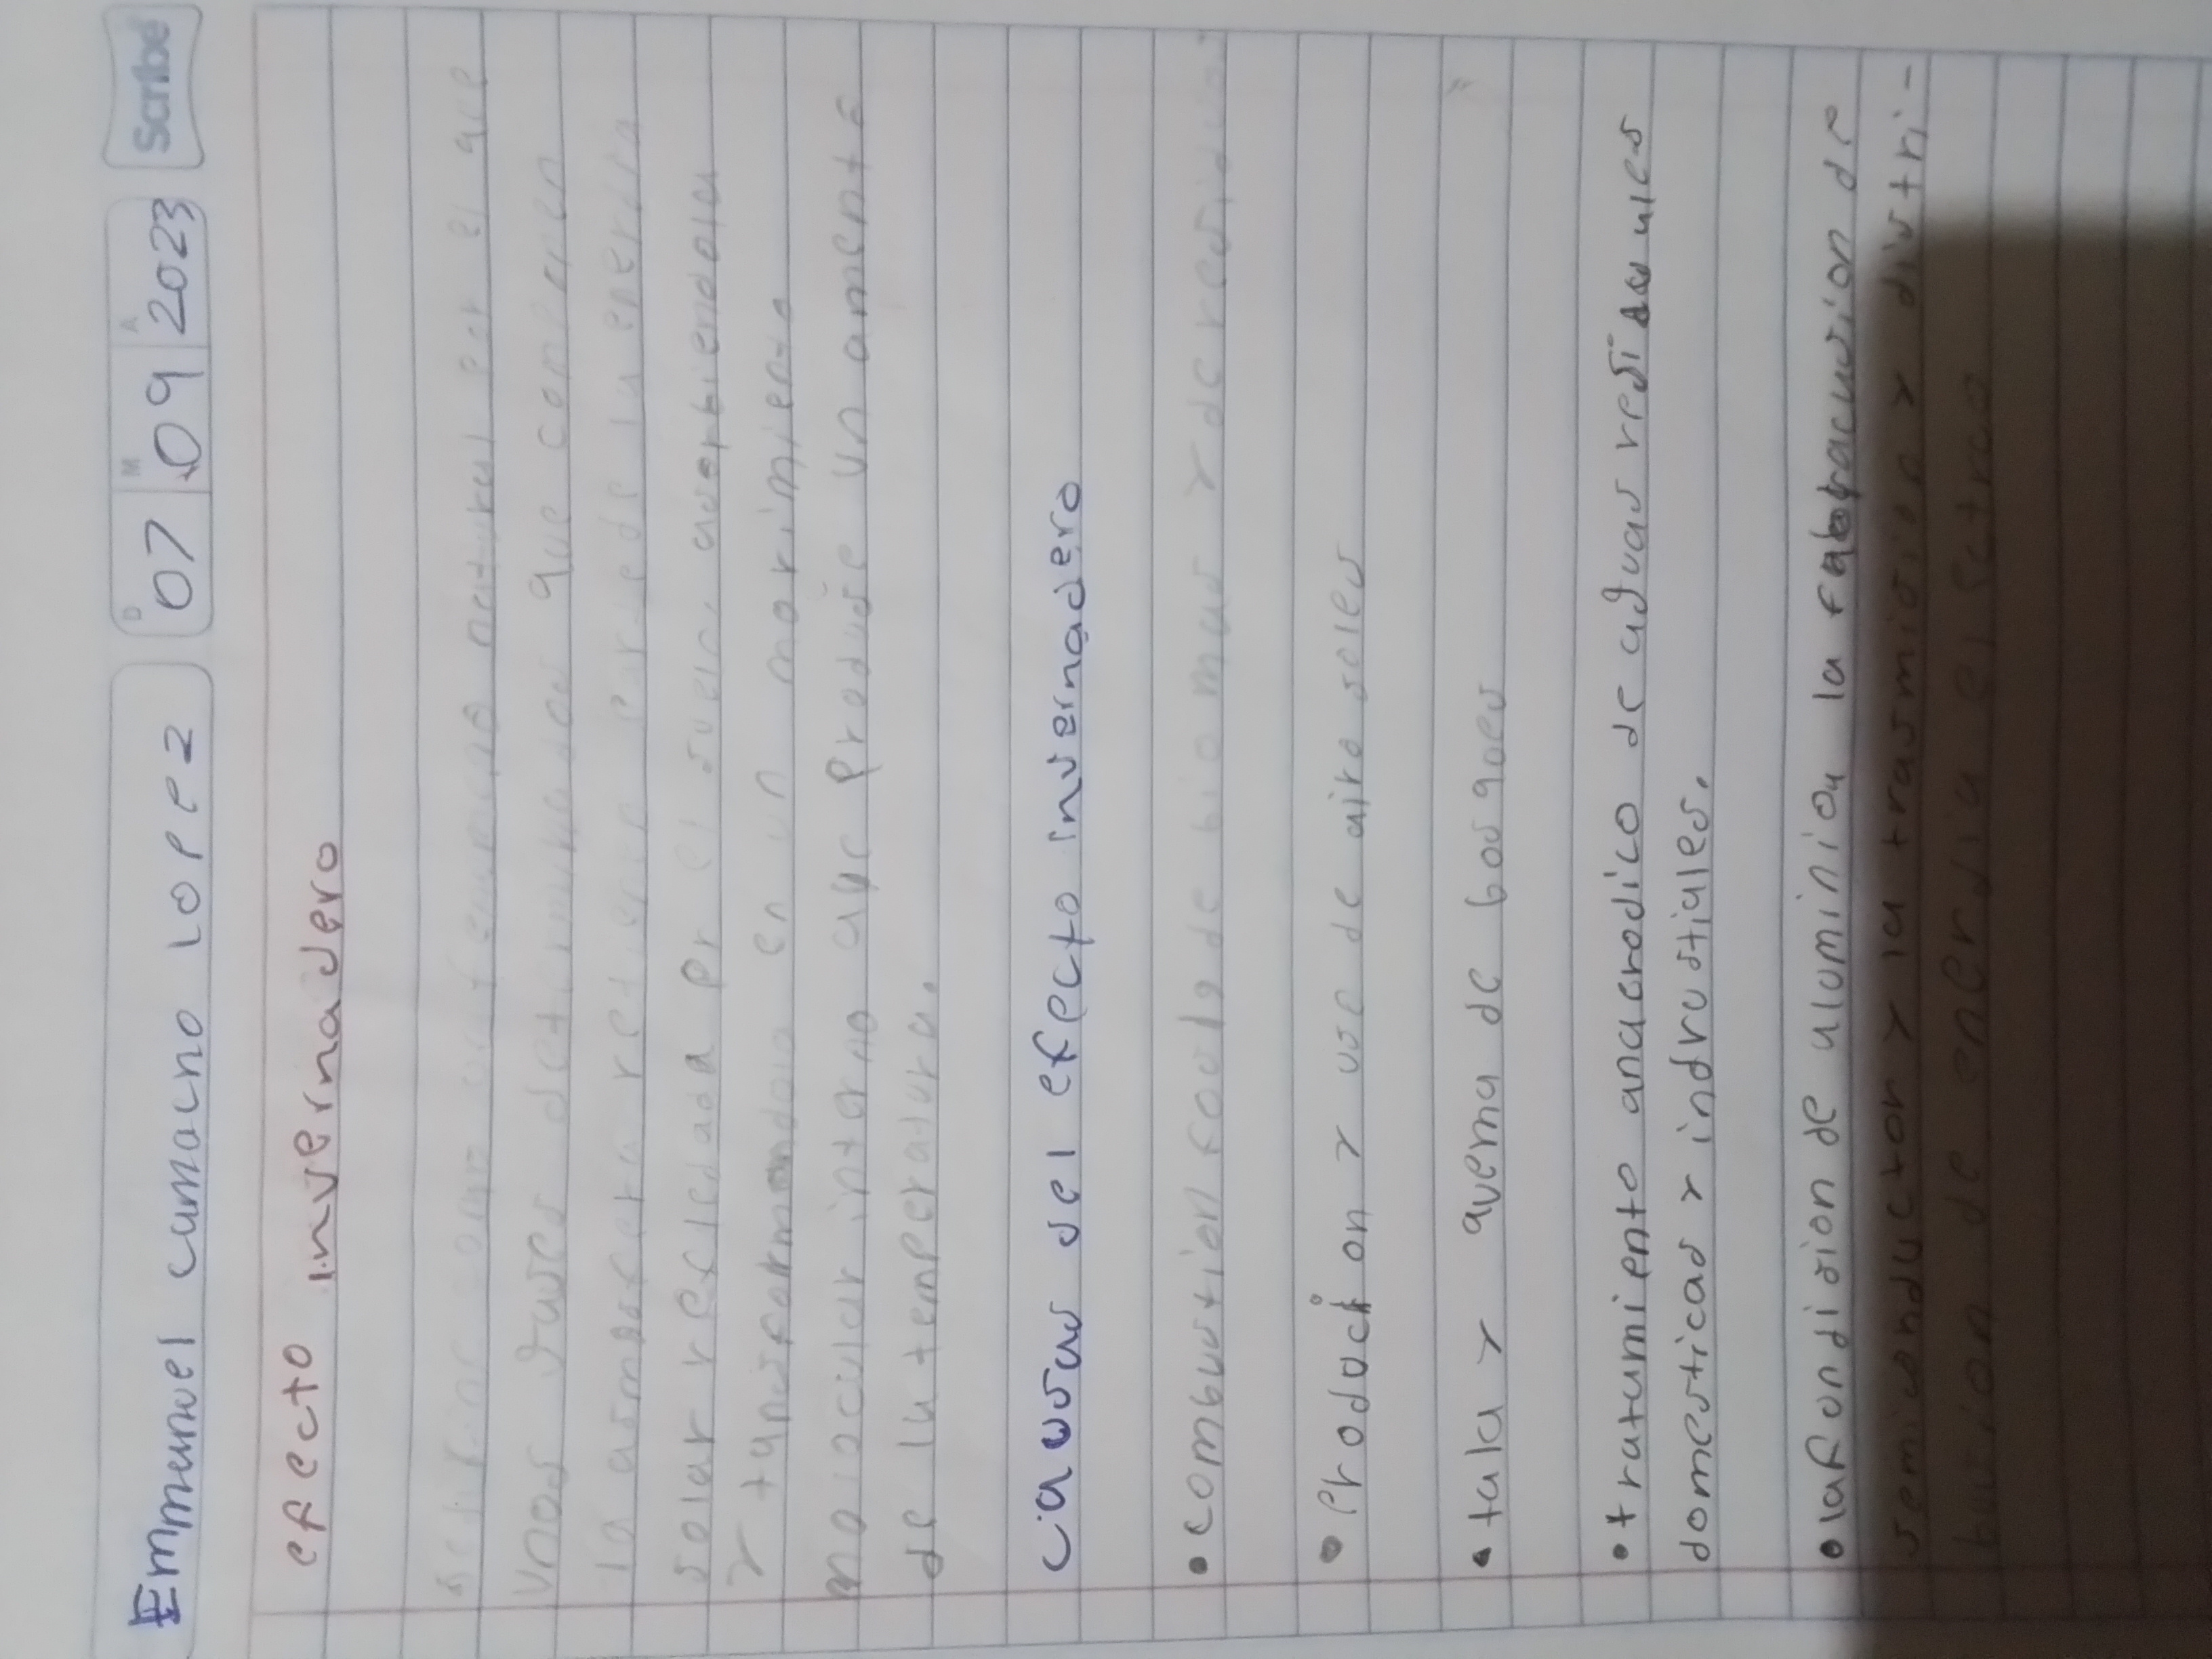 Emmanuel camacho lopez
D M A
07 09 2023
Scribe
efecto invernadero
se define como un fenomeno natural por el que
Unos gases determinados que componen
la admosfera retienen parte de la energia
solar reflejada pr el suelo, absorbiendola
y tansformandola en un movimiento
molecular interno que produse un amento
de la temperatura.
Causas del efecto invernadero
• combustion fosil de biomas y de residuos
• Producion y uso de airosoles
• tala y quema de bosques
• tratamiento anaerodico de aguas resi
domesticas y indrustiales.
• la fondision de aluminio, la fabracasion de
semiconductor y la trasmision y distri-
busion de energia elsctrca